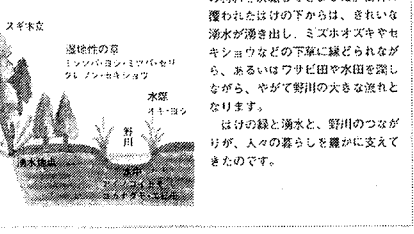 スギ木立
湿地性の草
ミツソバ・ヨシ・ミツバ・セリ
クレソン・セキショウ
水際
オギ・ヨシ
野川
湧水地点
水中
覆われたはけの下からは、きれいな
湧水が湧き出し、ミズホオズキやセ
キショウなどの下草に縁どられなが
ら、あるいはワサビ田や水田を潤し
ながら、やがて野川の大きな流れと
なります。
はけの緑と湧水と、野川のつなが
りが、人々の暮らしを豊かに支えて
きたのです。